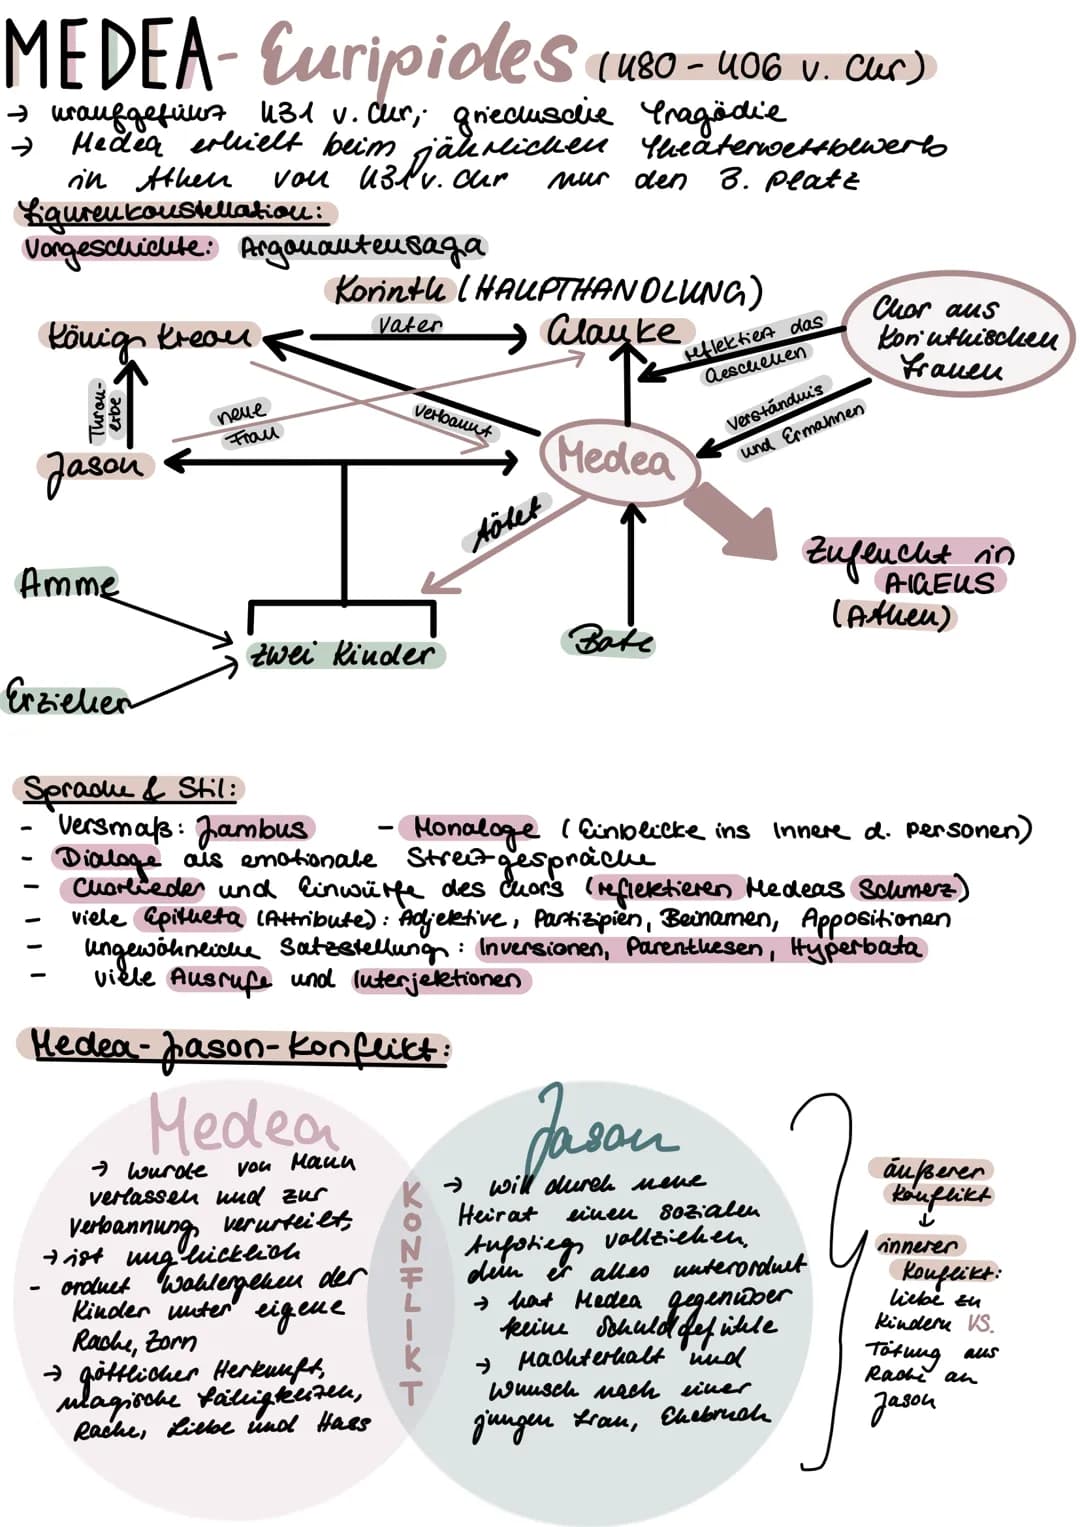 MEDEA - Euripides (480 - 406 v. Chr)
→ uraufgeführt 431 v. Chr; griechische Tragödie
→ Medea erhielt beim jährlichen Theaterwettbewerb
in Athen von 431 v. Chr nur den 3. Platz
Figurenkonstellation:
Vorgeschichte: Argonautensaga
Korinth (HAUPTHANDLUNG)
König Kreon
Vater
Glauke
Chor aus
Korinthischen
Frauen
reflektiert das
Geschehen
Thron-
erbe
neue
Frau
verbannt
Verständnis
und Ermahnen
Jason
Medea
tötet
Zuflucht in
AIGEUS
(Athen)
Amme
zwei Kinder
Bote
Erzieher
Sprache & Stil:
- Versmaß: Jambus - Monologe (Einblicke ins Innere d. Personen)
- Dialoge als emotionale Streitgespräche
- Chorlieder und Einwürfe des Chors (reflektieren Medeas Schmerz)
- viele Epitheta (Attribute): Adjektive, Partizipien, Beinamen, Appositionen
- ungewöhnliche Satzstellung: Inversionen, Parenthesen, Hyperbata
- viele Ausrufe und Interjektionen
Medea-Jason-Konflikt:
Medea
→ wurde von Mann
verlassen und zur
Verbannung verurteilt,
→ ist unglücklich
- ordnet Wohlergehen der
Kinder unter eigene
Rache, Zorn
→ göttlicher Herkunft,
magische Fähigkeiten,
Rache, Liebe und Hass
KONFLIKT
Jason
→ will durch neue
Heirat einen sozialen
Aufstieg vollziehen,
dem er alles unterordnet
→ hat Medea gegenüber
keine Schuldgefühle
→ Machterhalt und
Wunsch nach einer
jungen Frau, Ehebruch
äußerer
Konflikt
↓
innerer
Konflikt:
Liebe zu
Kindern VS.
Tötung aus
Rache an
Jason